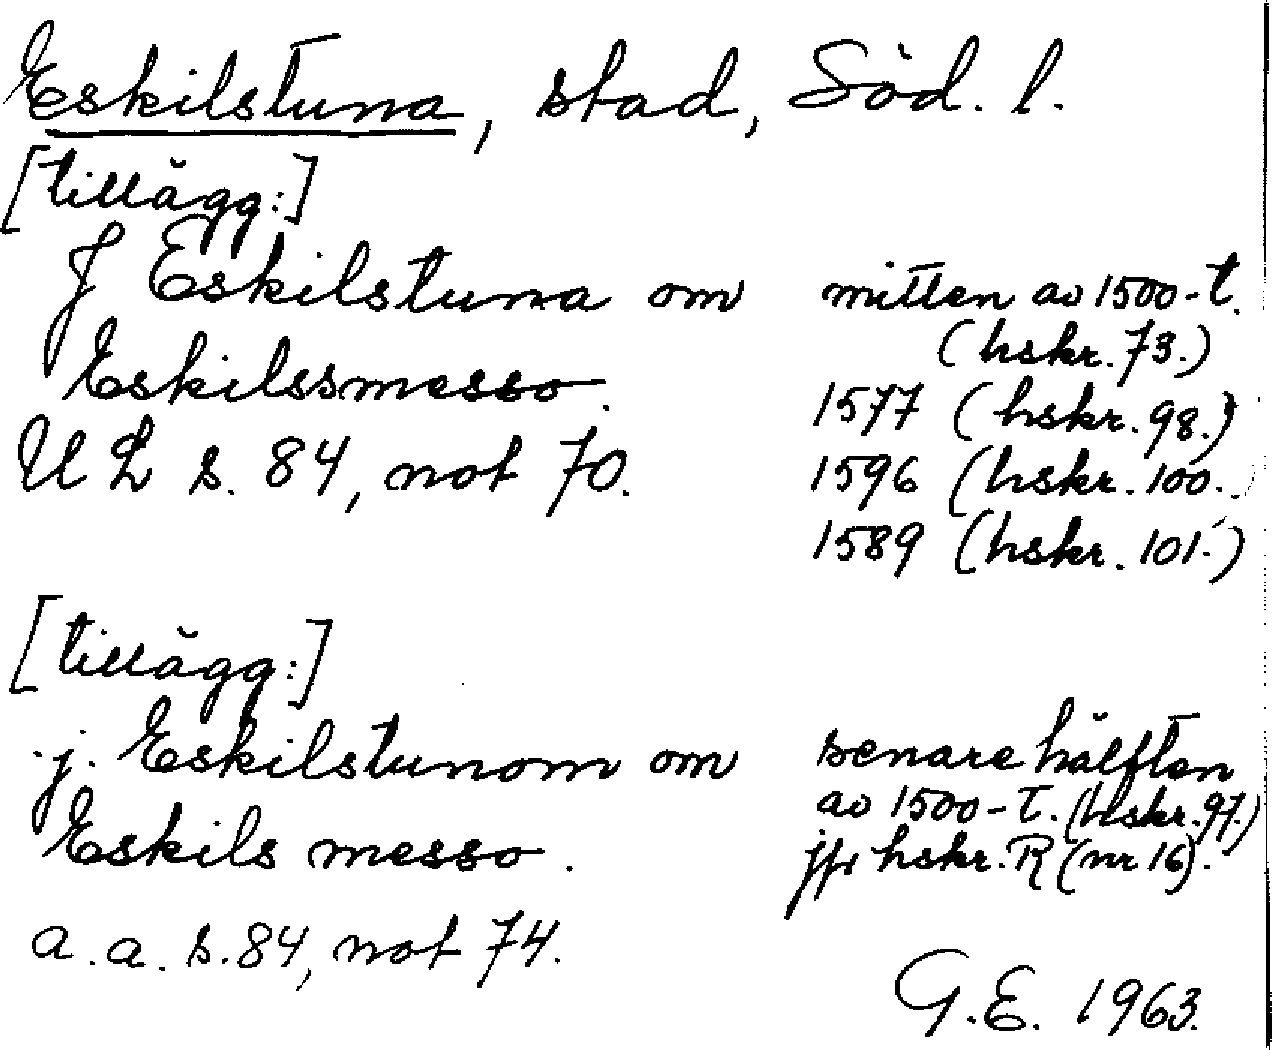 Eskilstuna, stad, Söd. l.
[tillägg:]
J Eskilstuna om mitten av 1500-t.
(hskr. 73.)
Eskilssmesso.
1577 (hskr. 98.)
U L s. 84, not 70.
1596 (hskr. 100.)
1589 (hskr. 101.)
[tillägg:]
j. Eskilstunom om senare hälften
av 1500-t. (hskr. 97.)
Eskils messo.
jfr hskr. R (nr 16).
a. a. s. 84, not 74.
G. E. 1963.